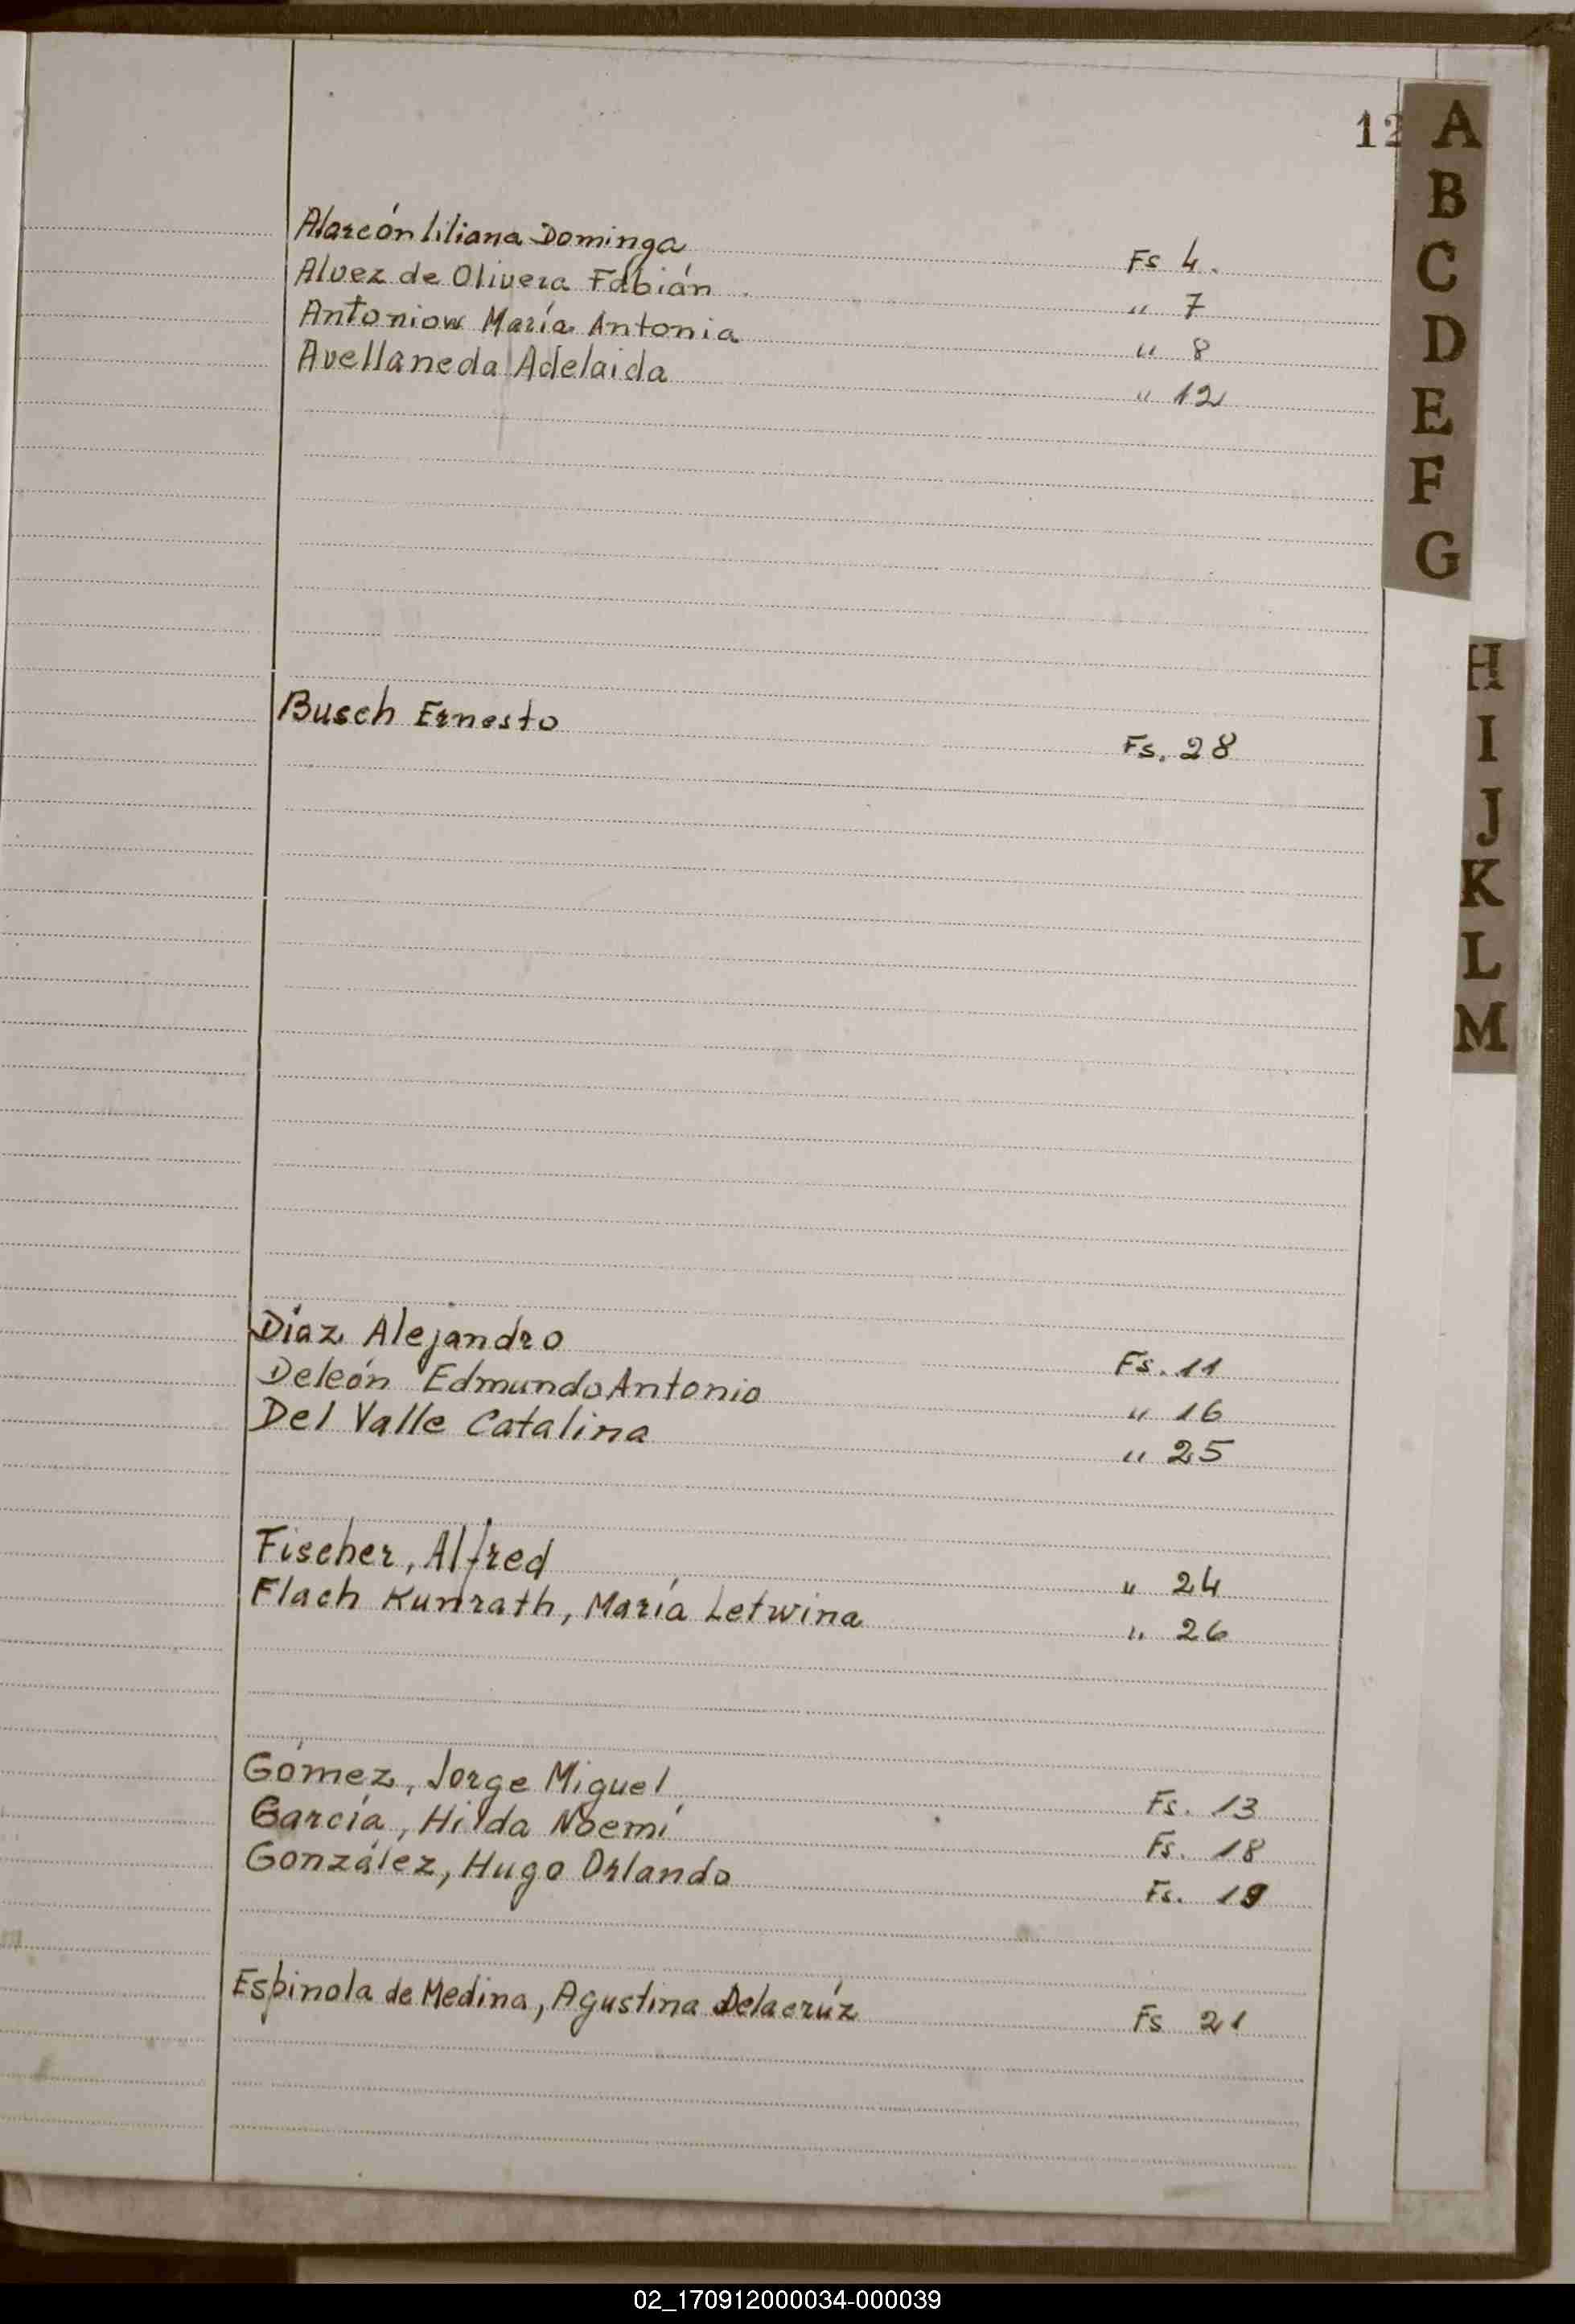 12
Alarcón Liliana Dominga Fs 4.
Alvez de Olivera Fabián " 7
Antoniow María Antonia " 8
Avellaneda Adelaida " 12
Busch Ernesto Fs. 28
Díaz Alejandro Fs. 11
Deleón Edmundo Antonio " 16
Del Valle Catalina " 25
Fischer, Alfred " 24
Flach Kunrath, María Letwina " 26
Gómez, Jorge Miguel Fs. 13
García, Hilda Noemí Fs. 18
González, Hugo Orlando Fs. 19
Espinola de Medina, Agustina Delacrúz Fs 21
A
B
C
D
E
F
G
H
I
J
K
L
M
02_170912000034-000039